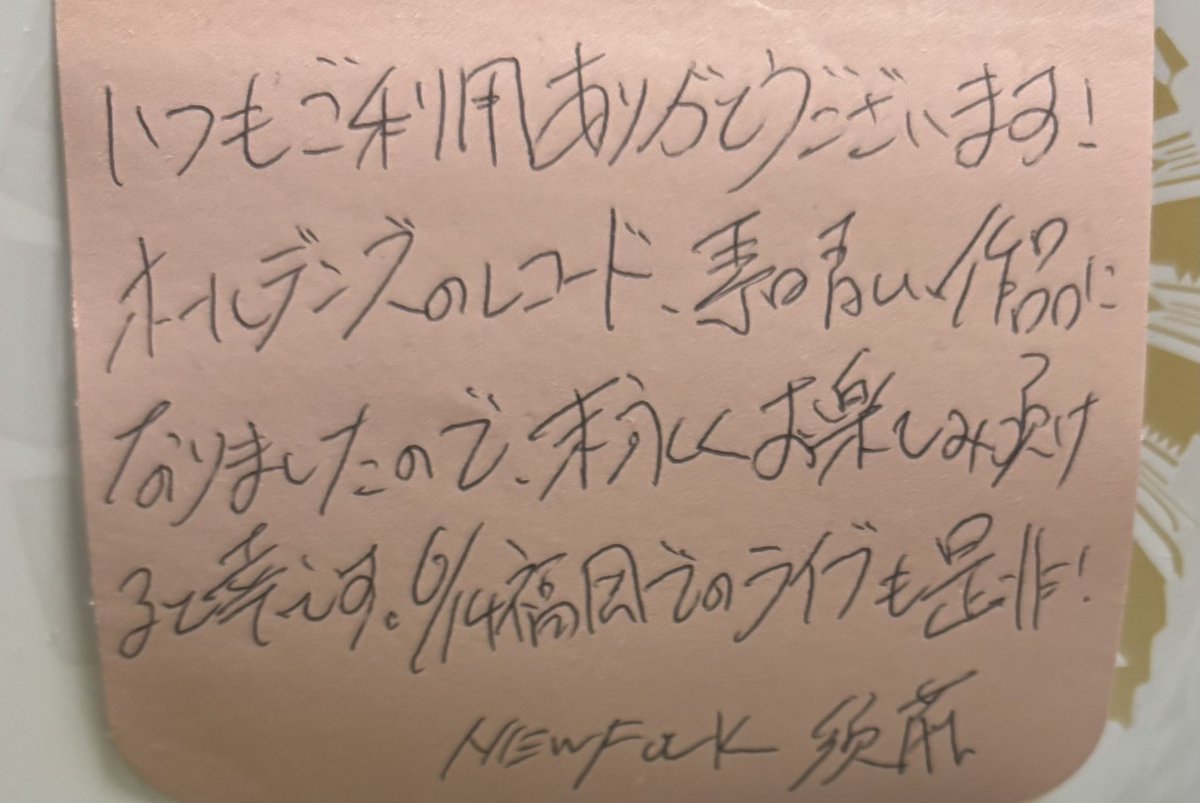 いつもご利用ありがとうございます!
オールデンズのレコード、素晴しい作品に
なりましたので、末永くお楽しみ頂け
ると幸いです。6/14福岡でのライブも是非!
NEWFOLK 須藤